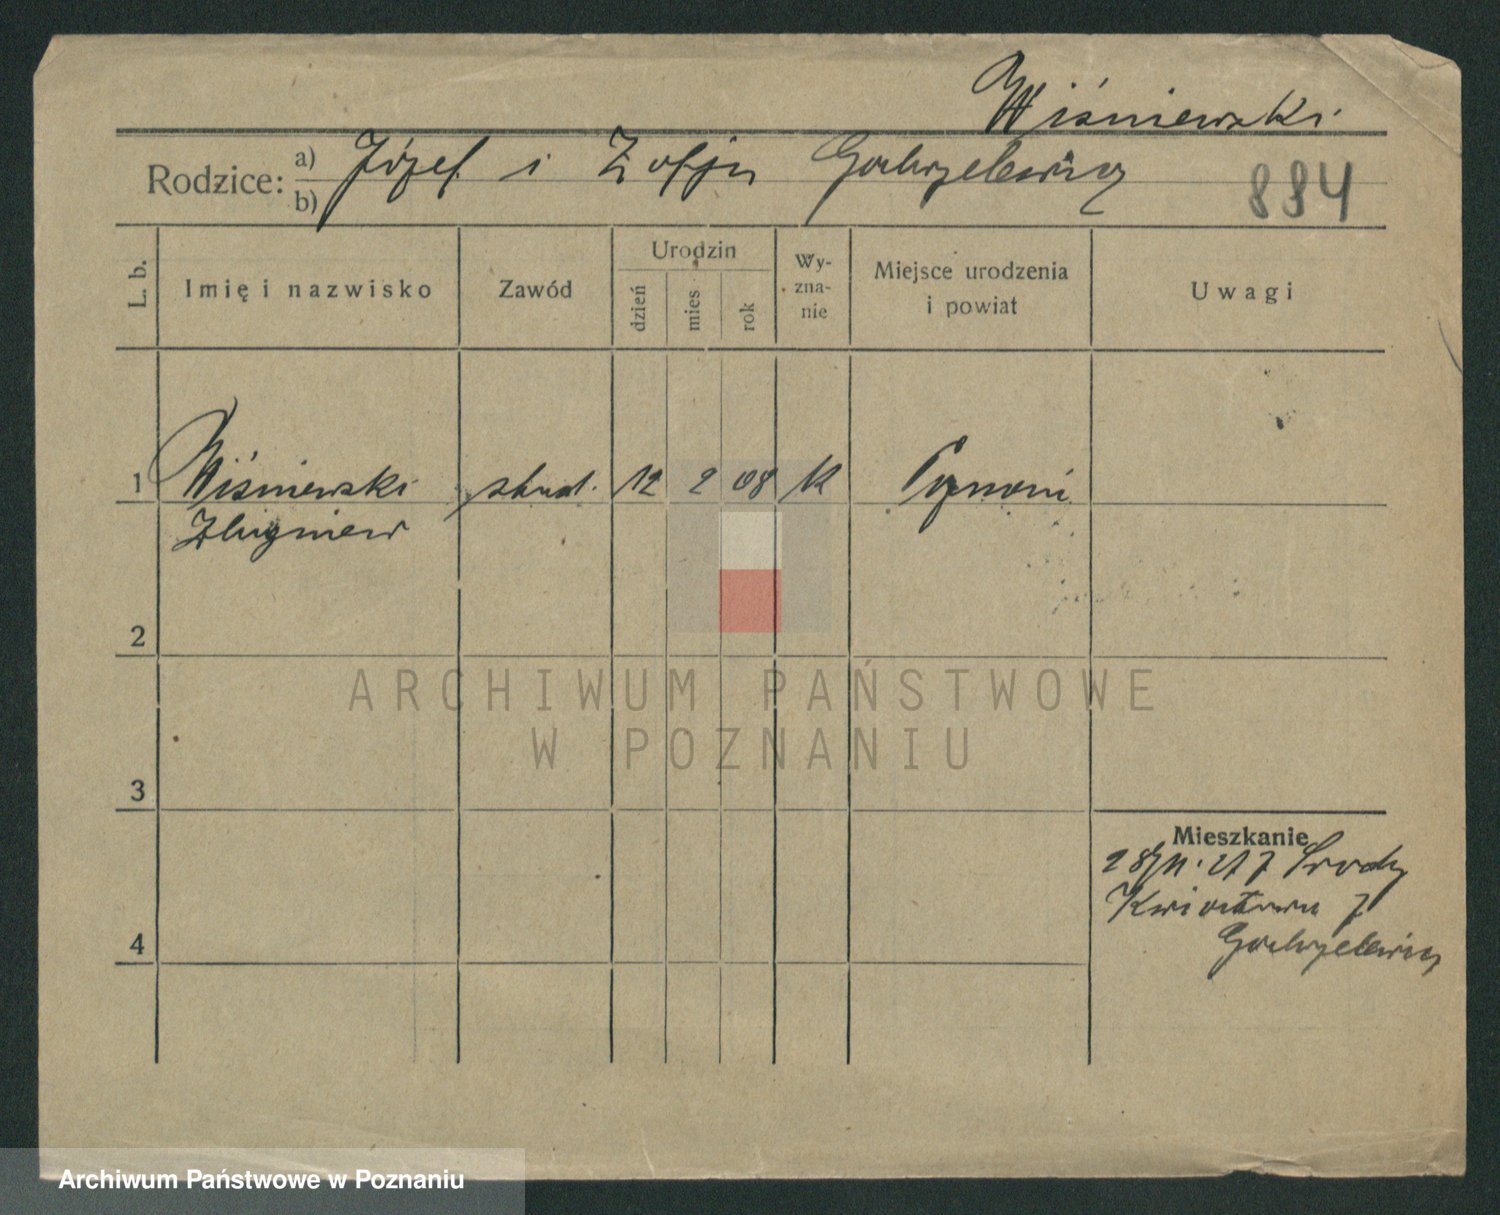 Wiśniewski
Rodzice: a) Józef i Zofja Gabryelewicz
b)
884
L. b.
Imię i nazwisko
Zawód
Urodzin
dzień
mies
rok
Wy-
zna-
nie
Miejsce urodzenia
i powiat
Uwagi
1 Wiśniewski stud. 12 2 08 K Poznań
Zbigniew
2
3
4
Mieszkanie
Środy
Kwiatowa 7
Gabryelewicz
ARCHIWUM PAŃSTWOWE
W POZNANIU
Archiwum Państwowe w Poznaniu